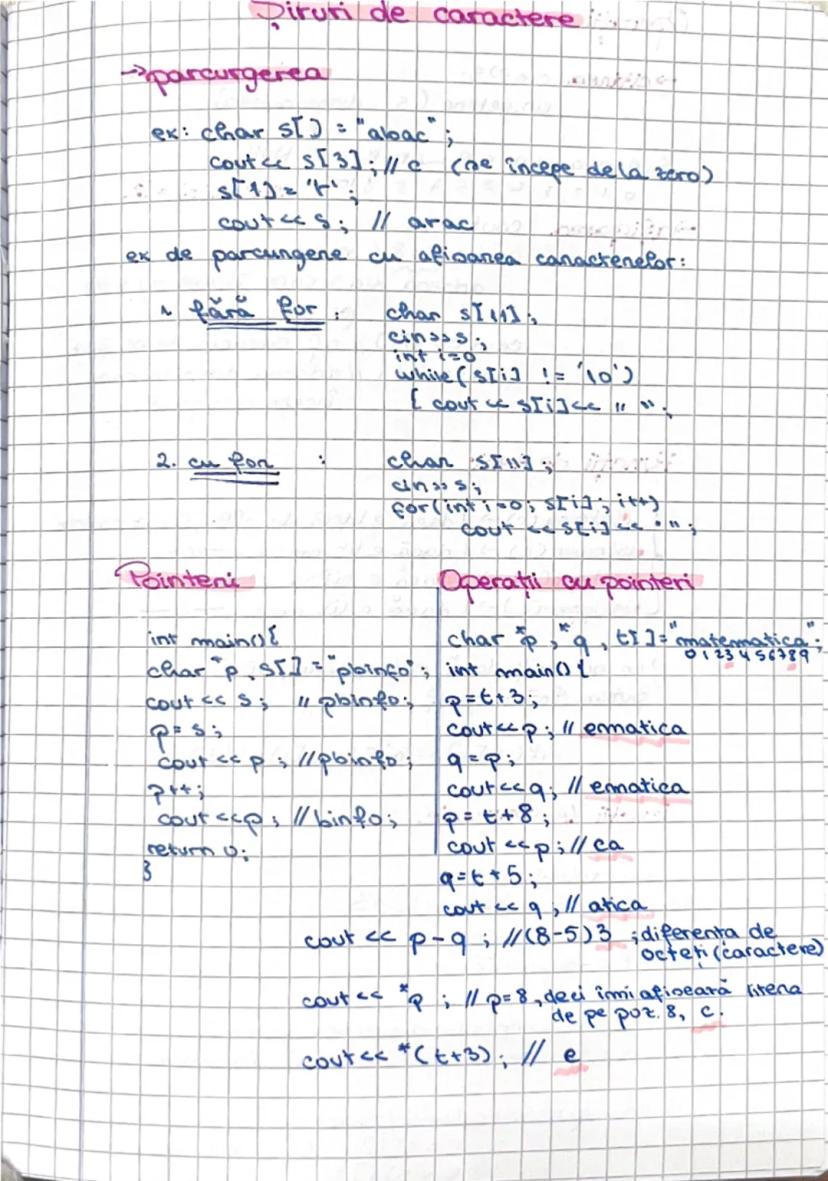 Șiruri de caractere
→ parcurgerea
ex: char s[] = "abac";
cout << s[3]; // c (se începe de la zero)
s[1] = 'r';
cout << s; // arac
ex de parcurgere cu afișarea caracterelor:
1. fără for: char s[11];
cin>>s;
int i=0
while(s[i] != '\0')
{ cout << s[i]<< " ";
2. cu for : char s[11];
cin>>s;
for(int i=0; s[i]; i++)
cout <<s[i]<< " ";
Pointeri
int main(){
char *p, s[] = "pbinfo";
cout << s; // pbinfo;
p=s;
cout << p; //pbinfo;
p++;
cout<<p; //binfo;
return 0;
}
Operații cu pointeri
char *p, *q, t[]="matematica";
0 1 2 3 4 5 6 7 8 9
int main(){
p=t+3;
cout<<p; // ematica
q=p;
cout<<q; // ematica
p=t+8;
cout<<p; // ca
q=t+5;
cout<<q; // atica
cout << p-q; //(8-5)3 ;diferența de
octeți (caractere)
cout<< *p; // p=8, deci îmi afișează litera
de pe poz. 8, c.
cout<< *(t+3); // e